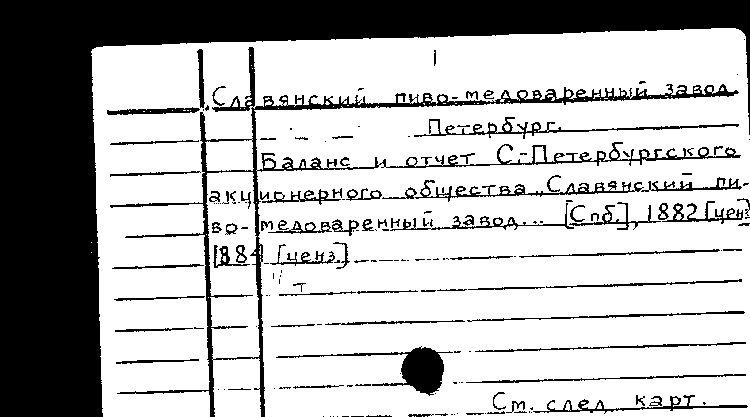 Славянский пиво-медоваренный завод.
Петербург.
Баланс и отчет С.-Петербургского
акционерного общества „Славянский пи-
во-медоваренный завод... [Спб.], 1882 [ценз
1884 [ценз.]
т
См. след. карт.